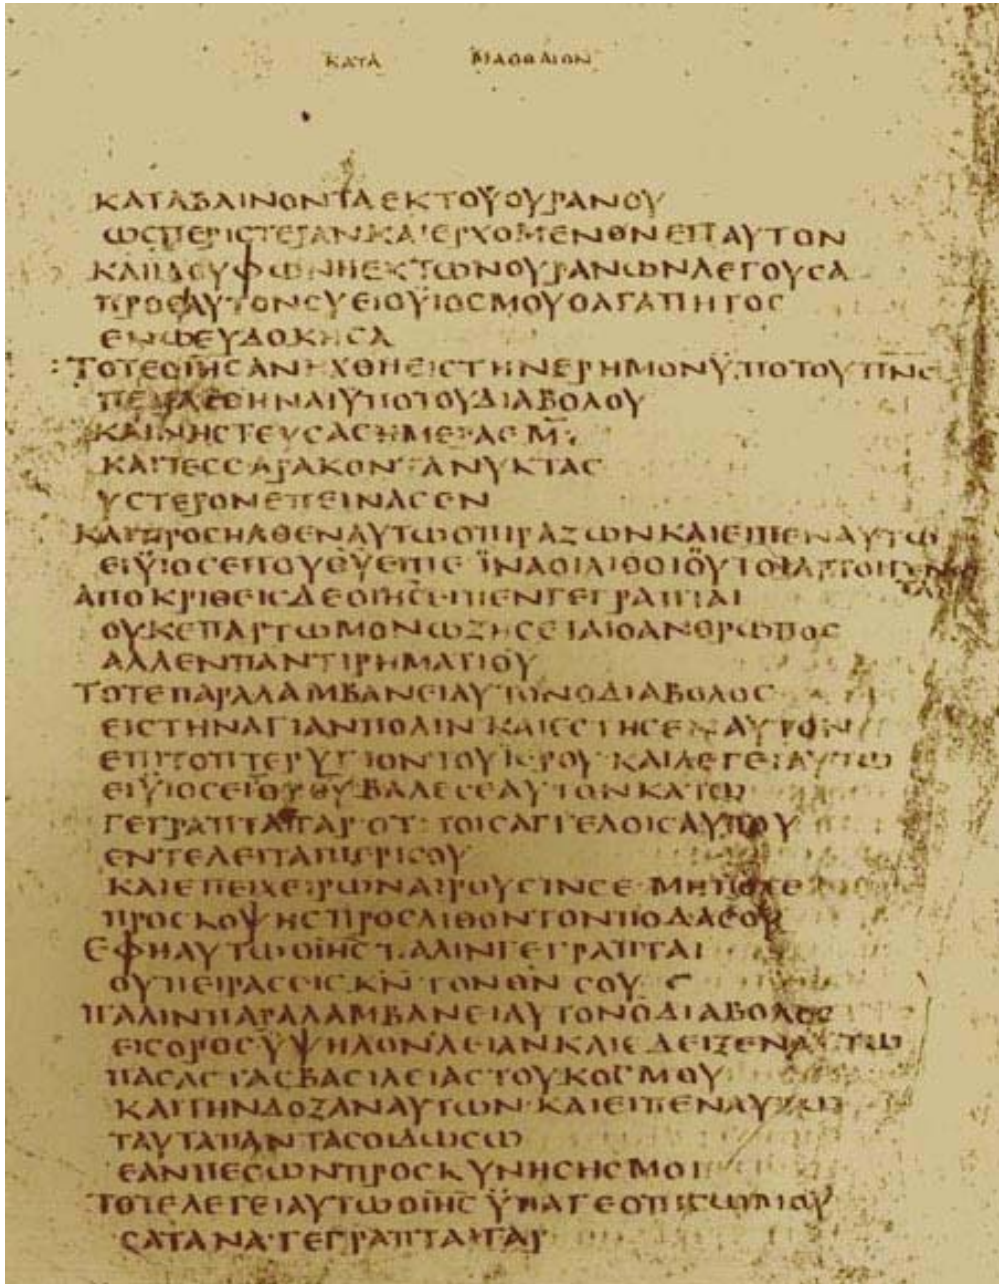 ΚΑΤΑ ΜΑΘΘΑΙΟΝ
ΚΑΤΑΒΑΙΝΟΝΤΑ ΕΚ ΤΟΥ ΟΥΡΑΝΟΥ
ΩϹ ΠΕΡΙϹΤΕΡΑΝ ΚΑΙ ΕΡΧΟΜΕΝΟΝ ΕΙΣ ΑΥΤΟΝ
ΚΑΙ ΙΔΟΥ ΦΩΝΗ ΕΚ ΤΩΝ ΟΥΡΑΝΩΝ ΛΕΓΟΥϹΑ
ΠΡΟϹ ΑΥΤΟΝ ϹΥ ΕΙ Ο ΥΙΟϹ ΜΟΥ Ο ΑΓΑΠΗΤΟϹ
ΕΝ Ω ΕΥΔΟΚΗϹΑ
ΤΟΤΕ Ο ΙΗϹ ΑΝΗΧΘΗ ΕΙϹ ΤΗΝ ΕΡΗΜΟΝ ΫΠΟ ΤΟΥ ΠΝϹ
ΠΕΙΡΑϹΘΗΝΑΙ ΫΠΟ ΤΟΥ ΔΙΑΒΟΛΟΥ
ΚΑΙ ΝΗϹΤΕΥϹΑϹ ΗΜΕΡΑϹ Μ̅
ΚΑΙ ΤΕϹϹΑΡΑΚΟΝΤΑ ΝΥΚΤΑϹ
ΥϹΤΕΡΟΝ ΕΠΕΙΝΑϹΕΝ
ΚΑΙ ΠΡΟϹΗΛΘΕΝ ΑΥΤΩ Ο ΠΙΡΑΖΩΝ ΚΑΙ ΕΙΠΕΝ ΑΥΤΩ
ΕΙ ΫΙΟϹ ΕΙ ΤΟΥ ΘΥ ΕΙΠΕ ΪΝΑ ΟΙ ΛΙΘΟΙ ΟΥΤΟΙ ΑΡΤΟΙ ΓΕΝΩΝΤΑΙ
ΑΠΟΚΡΙΘΕΙϹ ΔΕ Ο ΙΗϹ ΕΙΠΕΝ ΓΕΓΡΑΠΤΑΙ
ΟΥΚ ΕΠ ΑΡΤΩ ΜΟΝΩ ΖΗϹΕΤΑΙ Ο ΑΝΘΡΩΠΟϹ
ΑΛΛ ΕΝ ΠΑΝΤΙ ΡΗΜΑΤΙ ΘΥ
ΤΟΤΕ ΠΑΡΑΛΑΜΒΑΝΕΙ ΑΥΤΟΝ Ο ΔΙΑΒΟΛΟϹ
ΕΙϹ ΤΗΝ ΑΓΙΑΝ ΠΟΛΙΝ ΚΑΙ ΕϹΤΗϹΕΝ ΑΥΤΟΝ
ΕΠΙ ΤΟ ΠΤΕΡΥΓΙΟΝ ΤΟΥ ΙΕΡΟΥ · ΚΑΙ ΛΕΓΕΙ ΑΥΤΩ
ΕΙ ΫΙΟϹ ΕΙ ΤΟΥ ΘΥ ΒΑΛΕ ϹΕΑΥΤΟΝ ΚΑΤΩ
ΓΕΓΡΑΠΤΑΙ ΓΑΡ ΟΤΙ ΤΟΙϹ ΑΓΓΕΛΟΙϹ ΑΥΤΟΥ
ΕΝΤΕΛΕΙΤΑΙ ΠΕΡΙ ϹΟΥ
ΚΑΙ ΕΠΙ ΧΕΙΡΩΝ ΑΙΡΟΥϹΙΝ ϹΕ · ΜΗΠΟΤΕ
ΠΡΟϹΚΟΨΗϹ ΠΡΟϹ ΛΙΘΟΝ ΤΟΝ ΠΟΔΑ ϹΟΥ
ΕΦΗ ΑΥΤΩ Ο ΙΗϹ ΠΑΛΙΝ ΓΕΓΡΑΠΤΑΙ
ΟΥ ΠΕΙΡΑϹΕΙϹ ΚΝ ΤΟΝ ΘΝ ϹΟΥ
ΠΑΛΙΝ ΠΑΡΑΛΑΜΒΑΝΕΙ ΑΥΤΟΝ Ο ΔΙΑΒΟΛΟϹ
ΕΙϹ ΟΡΟϹ ΫΨΗΛΟΝ ΛΕΙΑΝ ΚΑΙ ΕΔΕΙΞΕΝ ΑΥΤΩ
ΠΑϹΑϹ ΤΑϹ ΒΑϹΙΛΕΙΑϹ ΤΟΥ ΚΟϹΜΟΥ
ΚΑΙ ΤΗΝ ΔΟΞΑΝ ΑΥΤΩΝ · ΚΑΙ ΕΙΠΕΝ ΑΥΤΩ
ΤΑΥΤΑ ΠΑΝΤΑ ϹΟΙ ΔΩϹΩ
ΕΑΝ ΠΕϹΩΝ ΠΡΟϹΚΥΝΗϹΗϹ ΜΟΙ
ΤΟΤΕ ΛΕΓΕΙ ΑΥΤΩ Ο ΙΗϹ ΫΠΑΓΕ ΟΠΙϹΩ ΜΟΥ
ϹΑΤΑΝΑ · ΓΕΓΡΑΠΤΑΙ ΓΑΡ